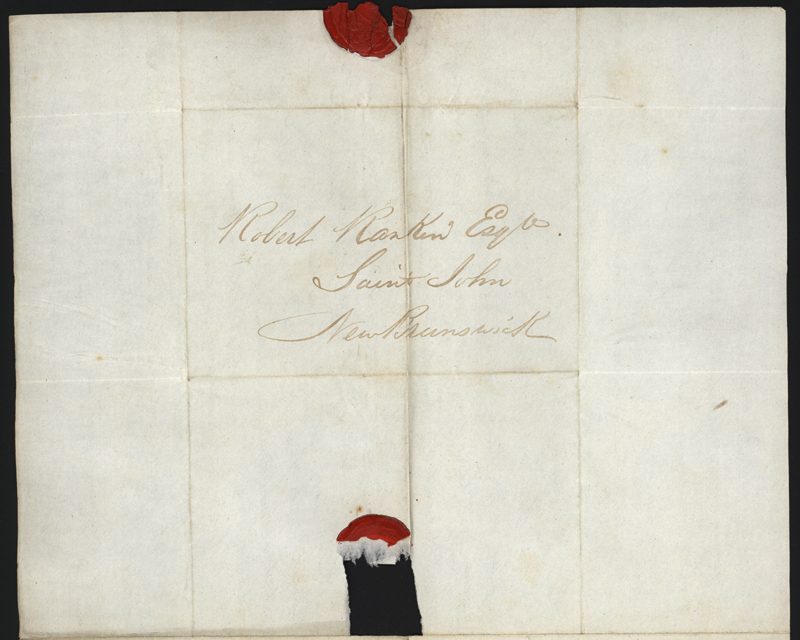 Robert Rankin Esqre.
Saint John
New Brunswick